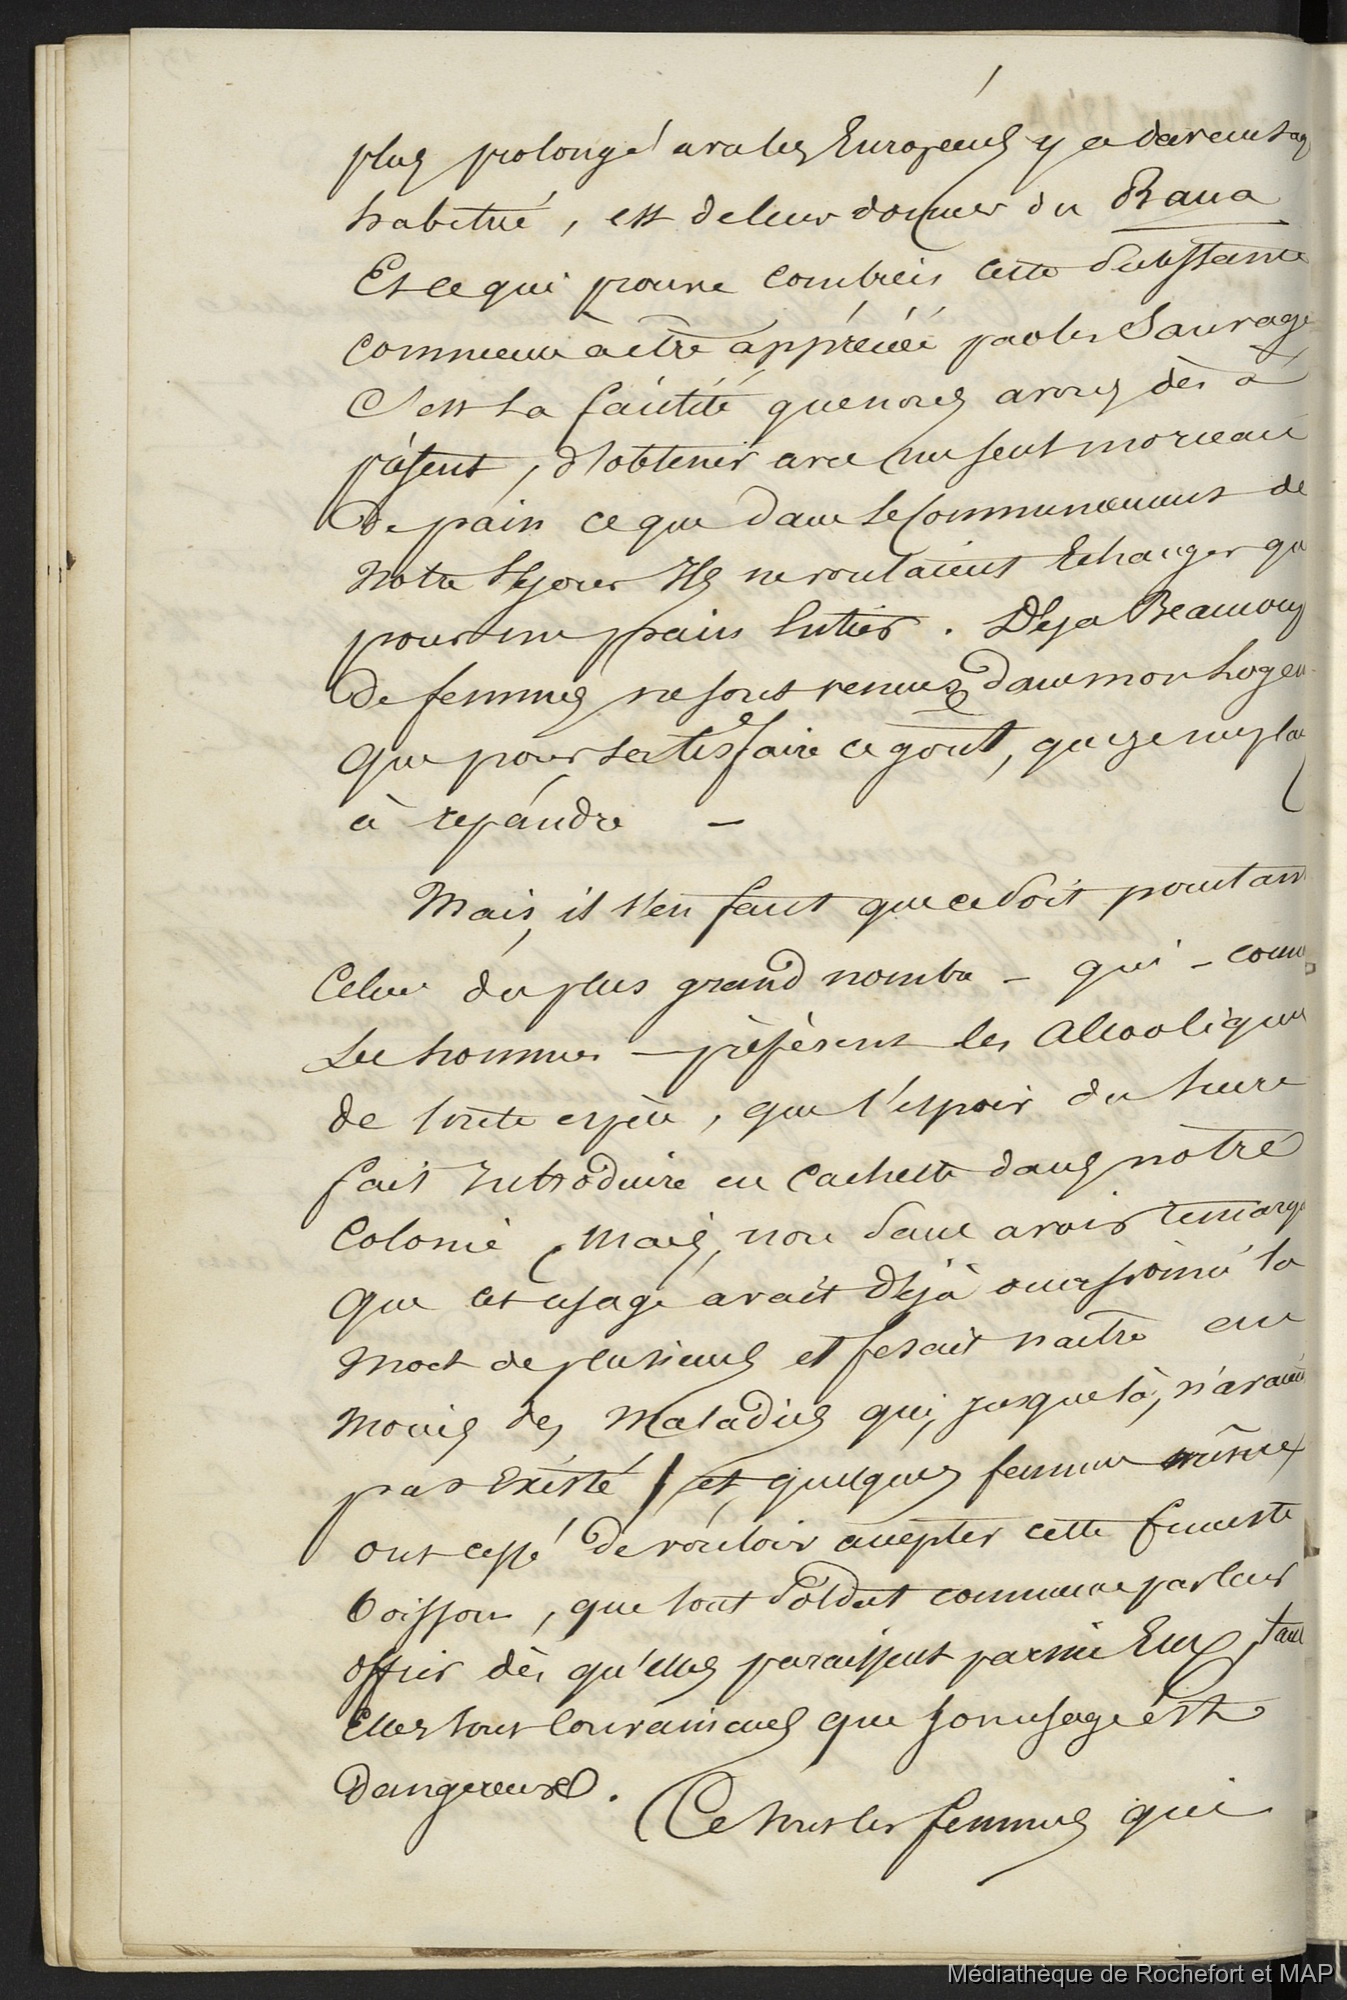 plus prolongé avec les Européens y a davantag
habitué, est de leur donner du Raua
Et ce qui prouve combien cette Substance
commence à être appréciée par les Sauvages
C'est la facilité que nous avons dès à
présent, d'obtenir avec un seul morceau
de pain ce que dans le Commencement de
Notre Séjour Ils ne voulaient Echanger qu
pour un pain Entier. Déja Beaucoup
de femmes ne sont venues dans mon logem
que pour satisfaire ce goût, que je me plai
à repándre —
Mais, il s'en faut que ce soit pourtant
Celui du plus grand nombre - qui - comm
Les hommes — préfèrent les Alcooliques
de toute espèce, que l'espoir du lucre
fait Introduire en cachette dans nôtre
Colonie, Mais, non sans avoir remarqu
Que cet usage avait déjà occasionné la
Mort de plusieurs et fesait naitre en
Moins des Maladies qui, jusque là, n'avaient
pas Existé / et quelques femmes même,
ont cessé de vouloir accepter cette funeste
boisson, que tout Soldat commence par leur
offrir dès qu'elles paraissent parmi Eux, tant
Elles sont Convaincues que son usage est
dangereux.
Ce sont les femmes qui
Médiathèque de Rochefort et MAP